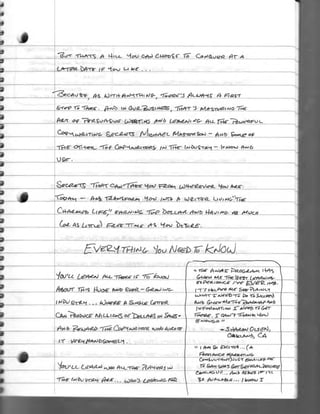 BUT THAT'S A HILL YOU CAN CHOOSE TO CONQUER AT A
LATER DATE IF YOU LIKE...
BECAUSE, AS WITH ANYTHING, THERE'S ALWAYS A FIRST
STEP TO TAKE. AND IN OUR BUSINESS, THAT'S MASTERING THE
ART OF PERSUASIVE WRITING AND LEARNING ALL THE POWERFUL
COPYWRITING SECRETS MICHAEL MASTERSON — AND SOME OF
THE OTHER TOP COPYWRITERS IN THE INDUSTRY — KNOW AND
USE.
SECRETS THAT CAN TAKE YOU FROM WHEREVER YOU ARE
TODAY — AND TRANSFORM YOU INTO A WRITER LIVING "THE
CHARMING LIFE," EARNING TOP DOLLAR AND HAVING AS MUCH
(OR AS LITTLE) FREE TIME AS YOU DESIRE.
EVERYTHING YOU NEED TO KNOW
YOU'LL LEARN ALL THERE IS TO KNOW
ABOUT THIS HUGE AND EVER-GROWING
INDUSTRY... WHERE A SINGLE LETTER
CAN PRODUCE MILLIONS OF DOLLARS IN SALES —
AND REWARD THE COPYWRITER WHO WROTE
IT VERY HANDSOMELY.
YOU'LL LEARN WHO ALL THE PLAYERS IN
THE INDUSTRY ARE... WHO'S LOOKING FOR
"THE AWAI PROGRAM HAS
GIVEN ME THE BEST LEARNING
EXPERIENCE I'VE EVER HAD.
THERE. I CAN'T THANK YOU
ENOUGH."
— SHARON OLSEN,
OAKLAND, CA
"I AM SO EXCITED...
SO AVAILABLE... I KNOW I